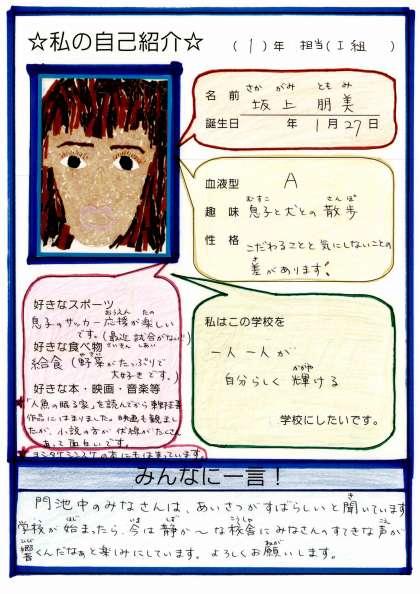 ☆私の自己紹介☆
（ 1 ）年 担当（I組 ）
さか がみ とも み
名 前 坂上 朋美
誕生日 年 1月27日
血液型 A
むすこ さんぽ
趣 味 息子と犬との散歩
性 格 こだわることと気にしないことの
さ
差があります!
好きなスポーツ
おうえん たの
息子のサッカー応援が楽しい
です。(最近試合がない)
さいきん しあい
好きな食べ物
やさい
給食(野菜がたっぷりで
大好きです。)
好きな本・映画・音楽等
「人魚の眠る家」を読んでから東野圭吾
作品にはまりました。映画も観まし
たが、小説の方が伏線がたくさん
あって面白いです。
ヨシタケシンスケの本にもはまっています。
私はこの学校を
一人一人が
かがや
自分らしく輝ける
学校にしたいです。
みんなに一言！
き
門池中のみなさんは、あいさつがすばらしいと聞いています
はじ いま しず こうしゃ こえ
学校が始まったら、今は静か〜な校舎にみなさんのすてきな声が
ひび ねが
響くんだなぁと楽しみにしています。よろしくお願いします。